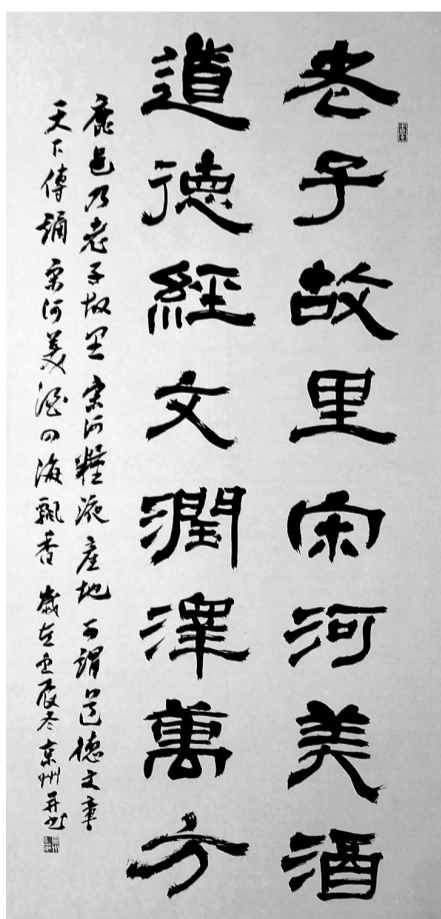 老子故里宋河美酒
道德經文潤澤萬方
鹿邑乃老子故里宋河糧液產地可謂道德文章
天下傳誦宋河美酒四海飄香歲在壬辰冬京州并書